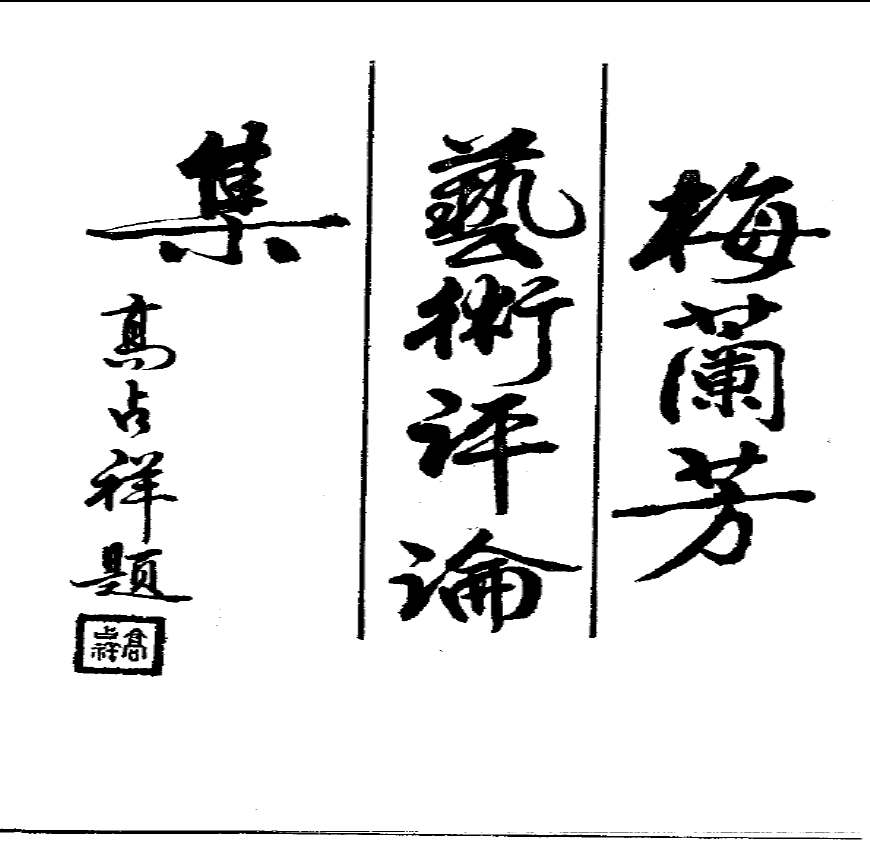 梅蘭芳
藝術評論
集
高占祥題
高占祥